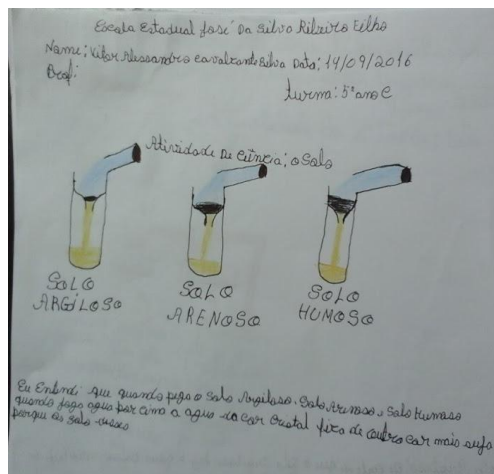 Escola Estadual José Da Silva Ribeiro Filho
Nome: Vitor Alessandro Cavalcante Silva Data: 14/09/2016
Prof:
turma: 5º ano C
Atividade De Ciência; o Solo
SOLO
ARGILOSO
SOLO
ARENOSO
SOLO
HUMOSO
Eu Entendi que quando pego o Solo Argiloso, Solo Arenoso e Solo Humoso
quando jogo agua por cima a agua da cor Cristal fica de outra cor mais suja
porque os solo